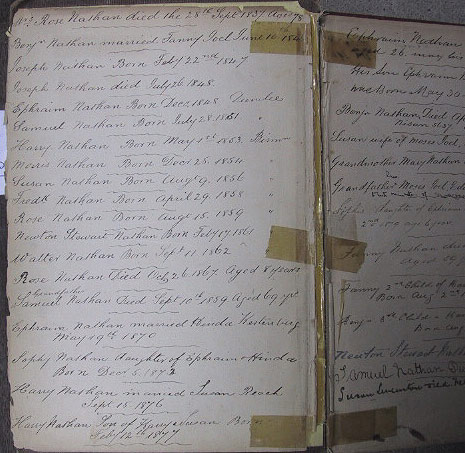 Mrs Rose Nathan died the 28th Sept 1837 Aged 78
Benjn Nathan married Fanny Joel June 10th 184
Joseph Nathan Born Feby 22nd 1847
Joseph Nathan died July 26 1848
Ephraim Nathan Born Decr 1848 Dundee
Samuel Nathan Born July 28 1851 "
Harry Nathan Born May 1st 1853 Birm
Moses Nathan Born Decr 25 1854 "
Susan Nathan Born Augst 9 1856 "
Fredk Nathan Born April 29 1858 "
Rose Nathan Born Augt 15 1859 "
Newton Stewart Nathan Born Feby 17 1861
Walter Nathan Born Sept 11 1862
Rose Nathan Died 26 1867 Aged 8 years
Grandfather
Samuel Nathan Died Sept 10th 1859 Aged 69 yrs
Ephraim Nathan married Hinda
May 19th 1870
Sophy Nathan daughter of Ephraim & Hinda
Born Decr 5 1872
Harry Nathan married Susan
Sept 15 1876
Harry Nathan Son of Harry & Susan Born
Feby 12th 1877
Ephraim Nathan
aged 26
his Son Ephraim
was Born May 30
Benjn Nathan Died
Susan wife of Moses Joel
Grandmother Mary Nathan
Grandfather Moses Joel
Sophy daughter of Ephraim
Fanny Nathan died
Fanny 2nd Child of
Born Aug 2
Child
Born Aug
Newton Stewart Nath
Samuel Nathan
Susan